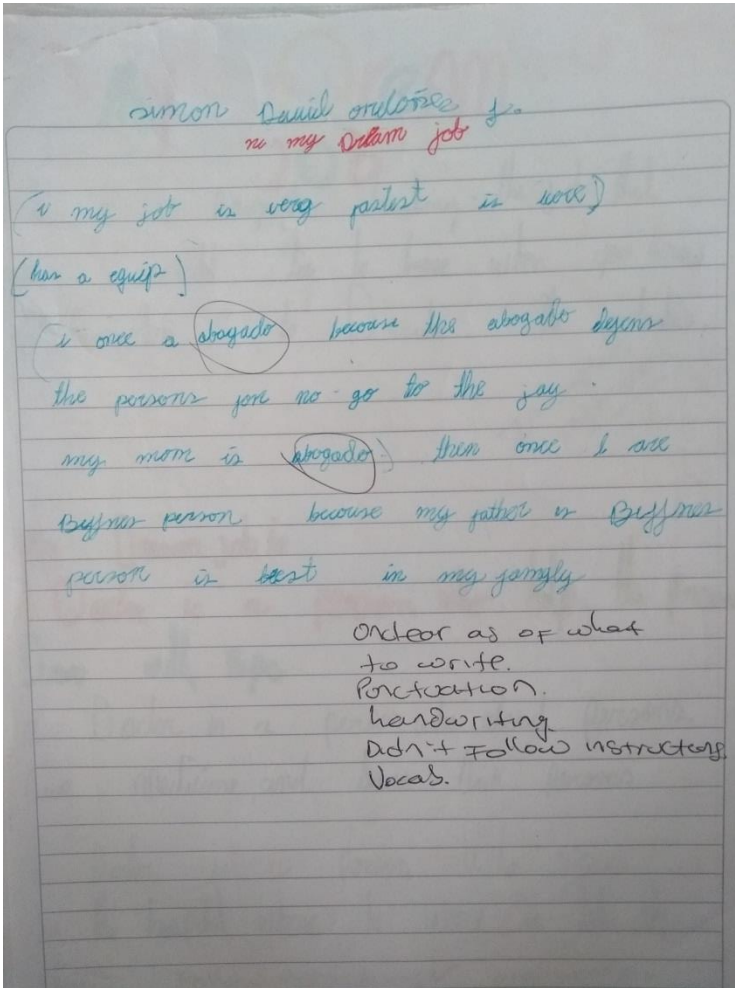 simon Daniel ordoñez j.
my Dream job
(i my job is very fastest is)
(has a equip)
(i once a abogado because the abogabo
the persons for no go to the jay.
my mom is abogado) then once I are
person because my father is
person is best in my
Onclear as of what
to write.
Ponctuation.
handwriting
Didn't Follow instructions
Vocab.